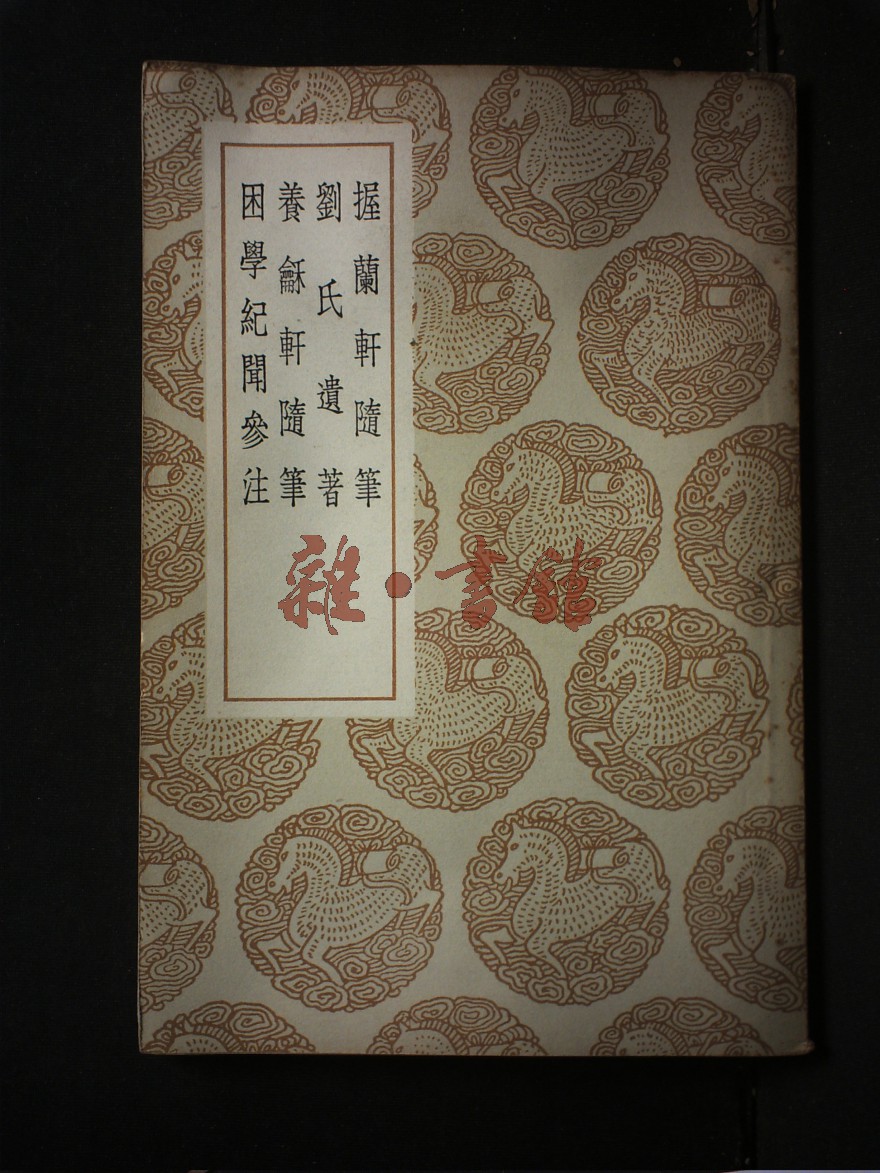 握蘭軒隨筆
劉氏遺著
養龢軒隨筆
困學紀聞參注
雜·書館